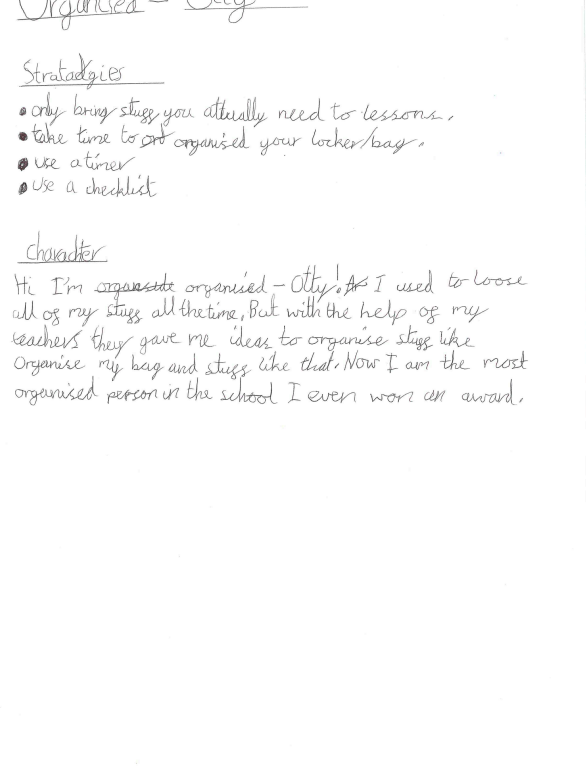 Organised - Otty
Stratadgies
• only bring stuff you atturally need to lessons.
• take time to ort organised your locker/bag.
• use a timer
• use a checklist
charachter
Hi I'm organsite organised - Otty! As I used to loose
all of my stuff all the time, But with the help of my
teachers they gave me ideas to organise stuff like
Organise my bag and stuff like that. Now I am the most
organised person in the school I even won an award.